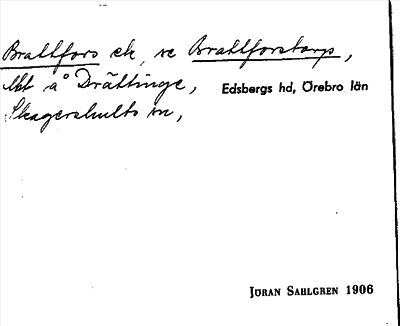 Brattfors ek, se Brattforstorp,
lht å Drättinge, Edsbergs hd, Örebro län
Skagershults sn,
JÖRAN SAHLGREN 1906